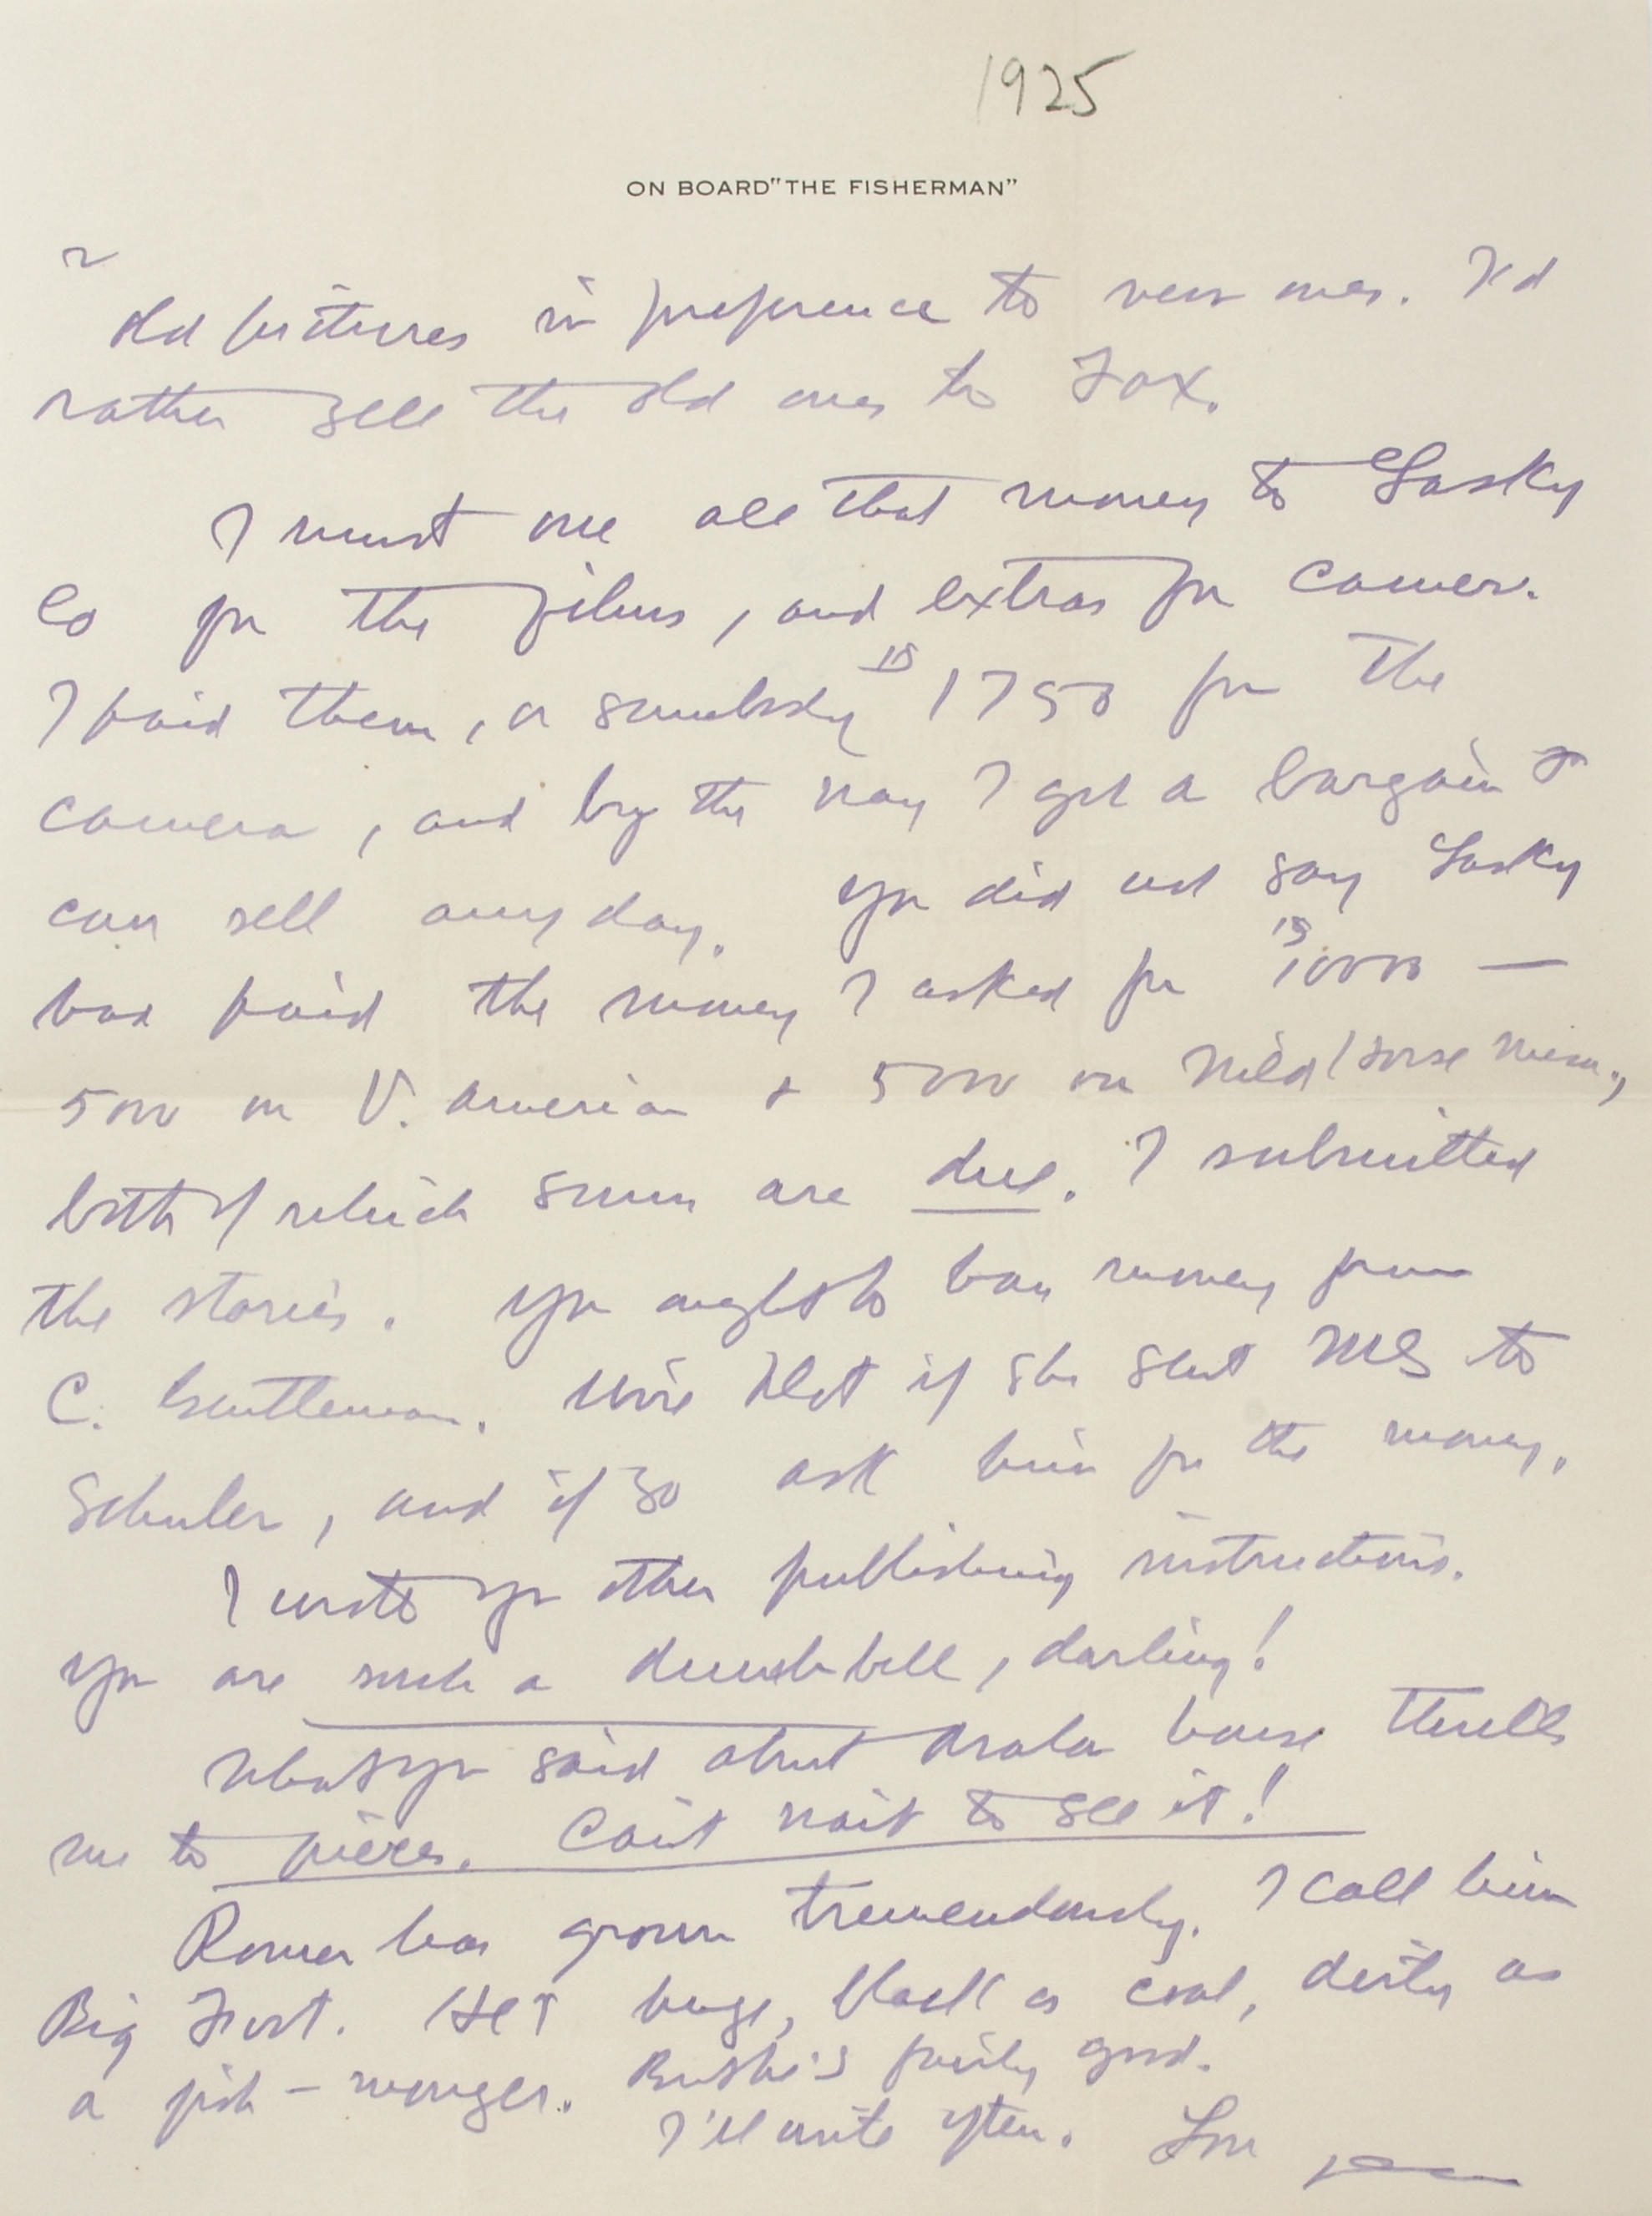 1925
ON BOARD "THE FISHERMAN"
2
old pictures in preference to new ones. I'd
rather sell the old ones to Fox.
I must owe all that money to Lasky
Co for the films, and extras for camera.
I paid them, or somebody $1750 for the
camera, and by the way I got a bargain &
can sell any day. You did not say Lasky
had paid the money I asked for $10000 —
5000 on V. American & 5000 on Wild Horse Mesa,
both of which sums are due. I submitted
the stories. You ought to have money from
C. Gentleman. Wire Dot if she sent MS to
Schuler, and if so ask him for the money.
I wrote you other publishing instructions.
You are such a dumb-bell, darling!
What you said about Avalon house thrills
me to pieces. Can't wait to see it!
Romer has grown tremendously. I call him
Big Foot. He's huge, black as coal, dirty as
a fish-monger. Bushe's fairly good.
I'll write often. Love